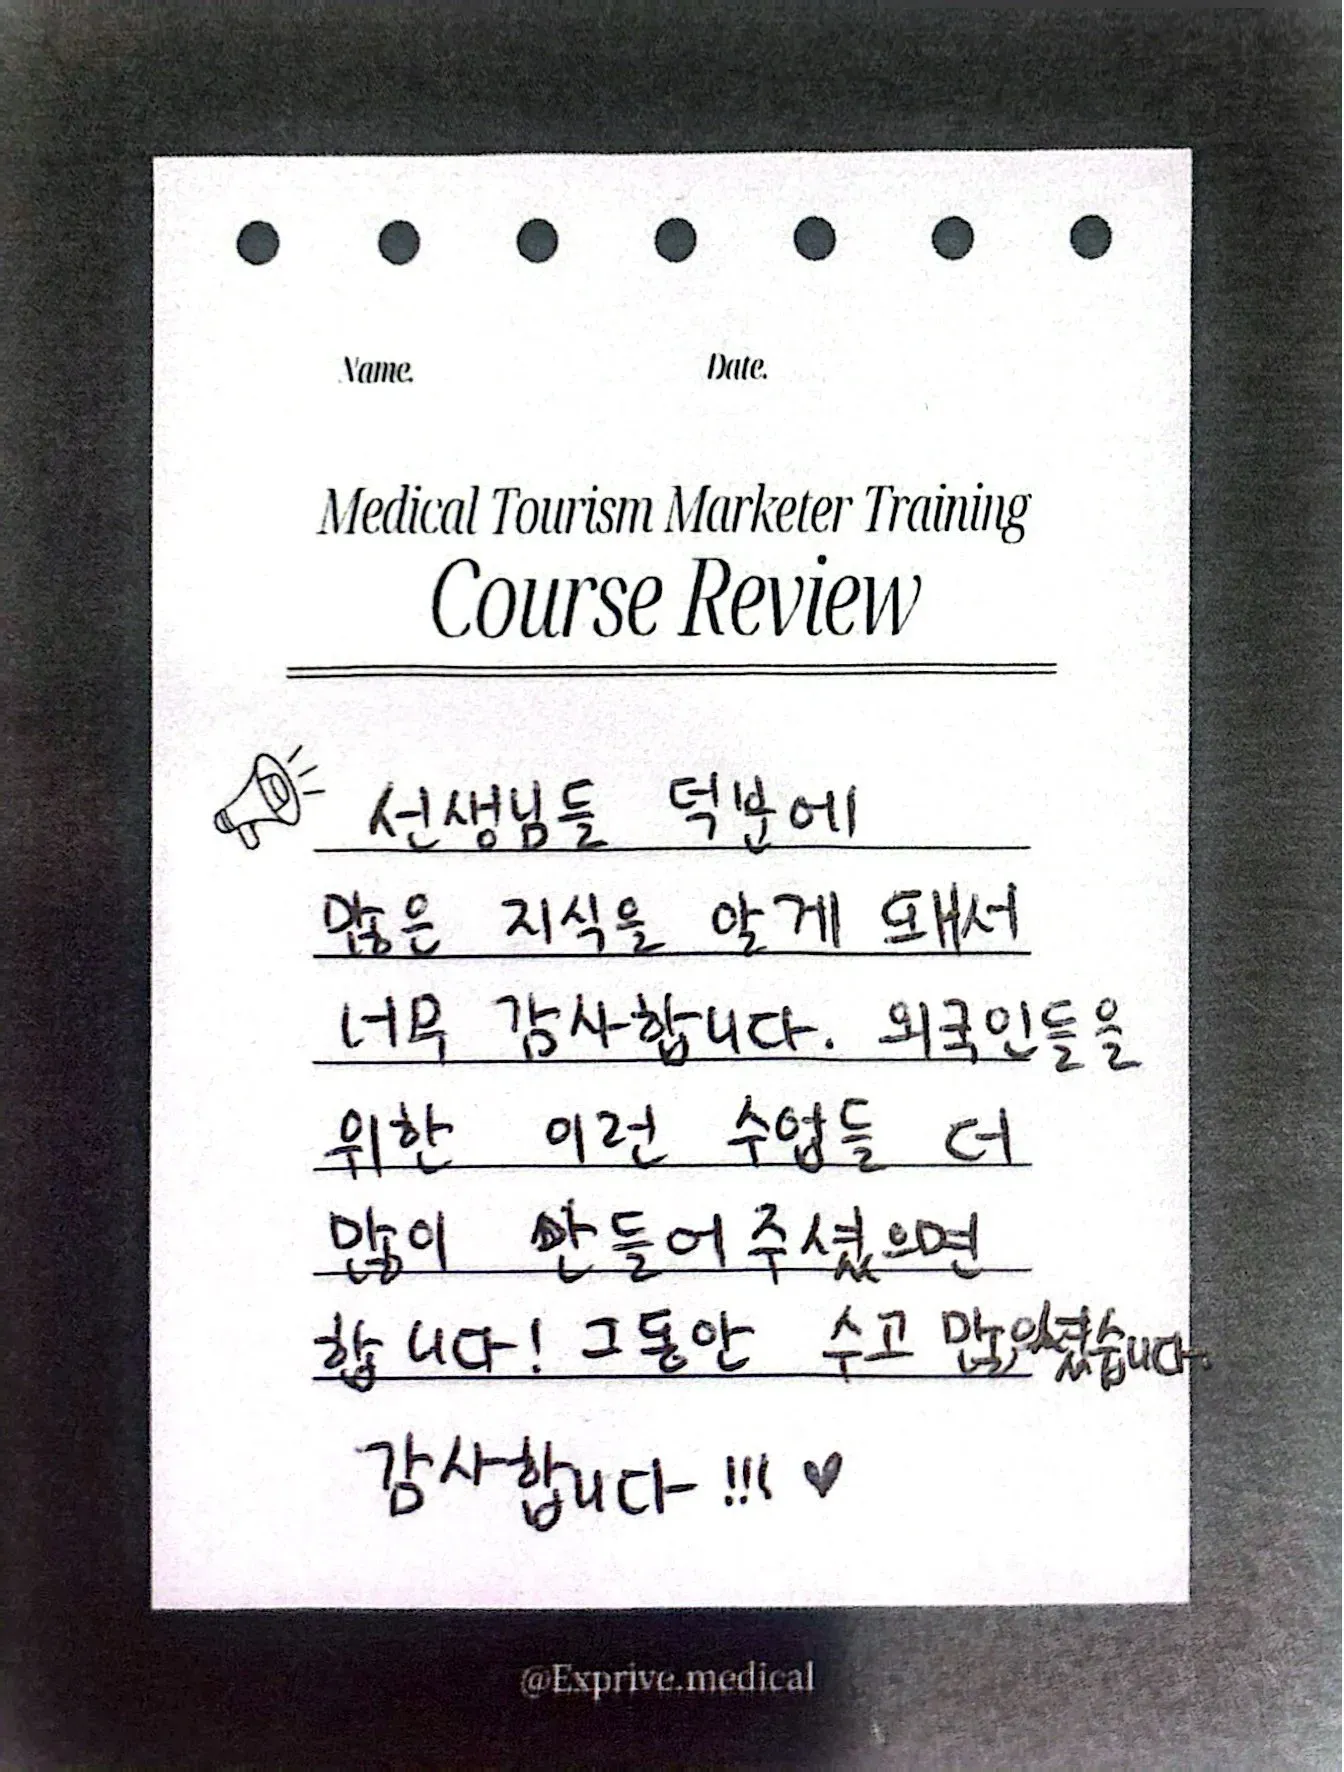 Name. Date.
Medical Tourism Marketer Training
Course Review
선생님들 덕분에
많은 지식을 알게 돼서
너무 감사합니다. 외국인들을
위한 이런 수업들 더
많이 만들어 주셨으면
합니다! 그동안 수고 많으셨습니다.
감사합니다 !!! ♥
@Exprive.medical